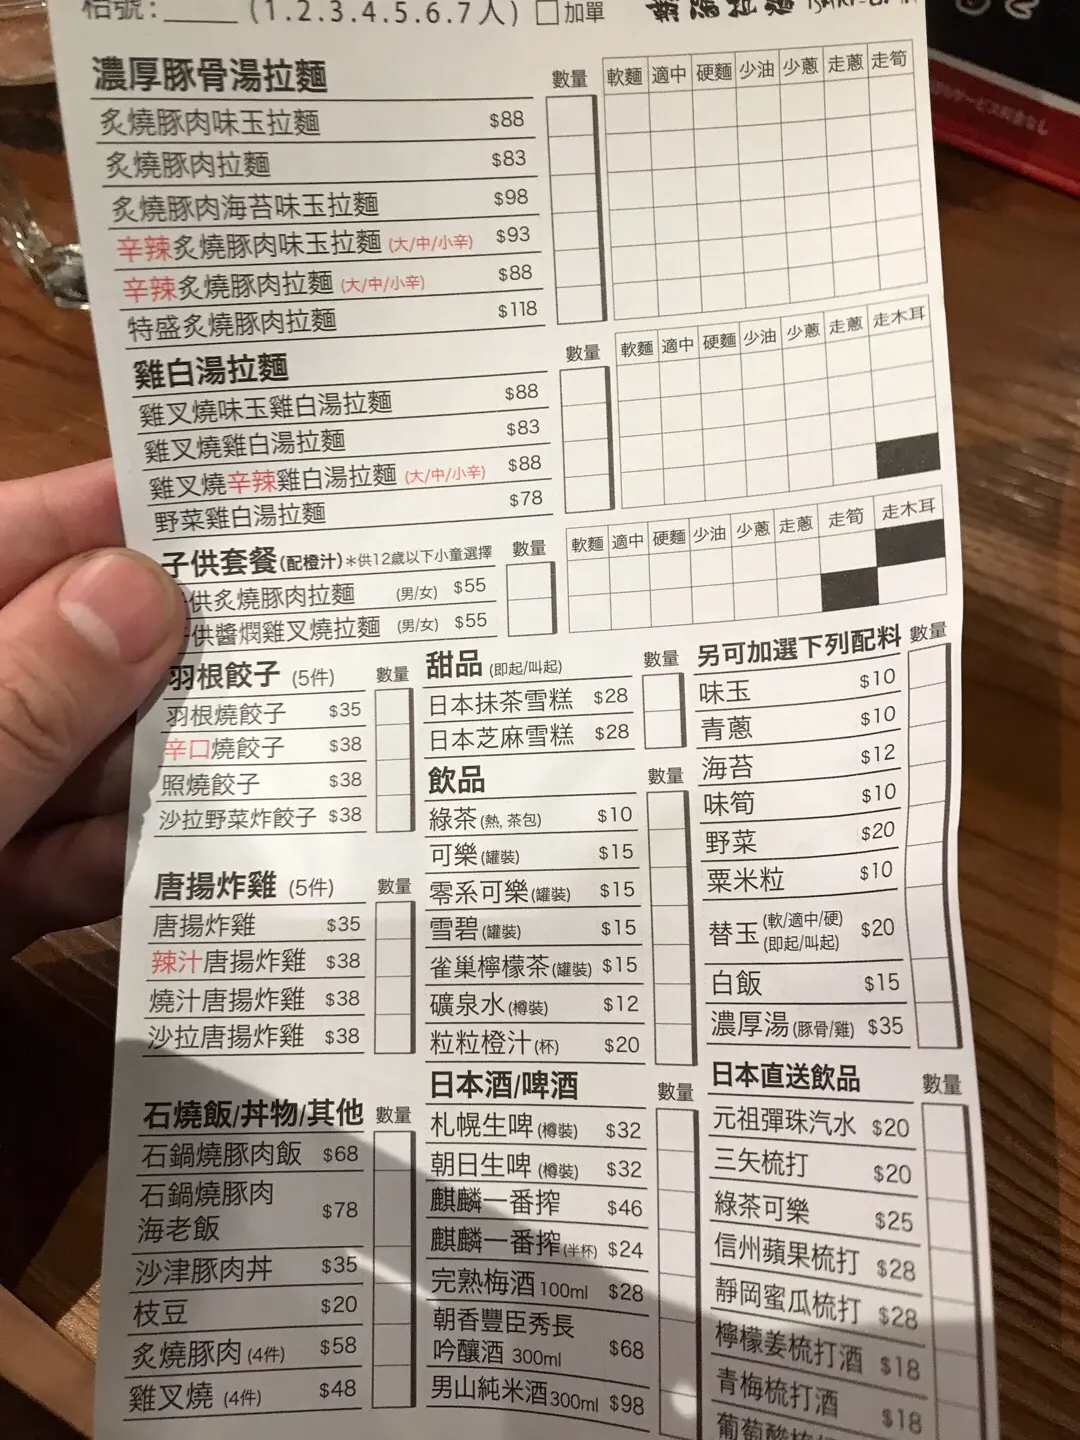 枱號:_____(1.2.3.4.5.6.7人) □加單
濃厚豚骨湯拉麵 數量 軟麵 適中 硬麵 少油 少蔥 走蔥 走筍
炙燒豚肉味玉拉麵 $88
炙燒豚肉拉麵 $83
炙燒豚肉海苔味玉拉麵 $98
辛辣炙燒豚肉味玉拉麵 (大/中/小辛) $93
辛辣炙燒豚肉拉麵 (大/中/小辛) $88
特盛炙燒豚肉拉麵 $118
雞白湯拉麵 數量 軟麵 適中 硬麵 少油 少蔥 走蔥 走木耳
雞叉燒味玉雞白湯拉麵 $88
雞叉燒雞白湯拉麵 $83
雞叉燒辛辣雞白湯拉麵 (大/中/小辛) $88
野菜雞白湯拉麵 $78
子供套餐(配橙汁)*供12歲以下小童選擇 數量 軟麵 適中 硬麵 少油 少蔥 走蔥 走筍 走木耳
供炙燒豚肉拉麵 (男/女) $55
供醬燜雞叉燒拉麵 (男/女) $55
羽根餃子 (5件) 數量
羽根燒餃子 $35
辛口燒餃子 $38
照燒餃子 $38
沙拉野菜炸餃子 $38
唐揚炸雞 (5件) 數量
唐揚炸雞 $35
辣汁唐揚炸雞 $38
燒汁唐揚炸雞 $38
沙拉唐揚炸雞 $38
石燒飯/丼物/其他 數量
石鍋燒豚肉飯 $68
石鍋燒豚肉
海老飯 $78
沙津豚肉丼 $35
枝豆 $20
炙燒豚肉 (4件) $58
雞叉燒 (4件) $48
甜品 (即起/叫起) 數量
日本抹茶雪糕 $28
日本芝麻雪糕 $28
飲品 數量
綠茶(熱, 茶包) $10
可樂(罐裝) $15
零系可樂(罐裝) $15
雪碧(罐裝) $15
雀巢檸檬茶(罐裝) $15
礦泉水(樽裝) $12
粒粒橙汁(杯) $20
日本酒/啤酒 數量
札幌生啤(樽裝) $32
朝日生啤(樽裝) $32
麒麟一番搾 $46
麒麟一番搾(半杯) $24
完熟梅酒100ml $28
朝香豐臣秀長
吟釀酒 300ml $68
男山純米酒300ml $98
另可加選下列配料 數量
味玉 $10
青蔥 $10
海苔 $12
味筍 $10
野菜 $20
粟米粒 $10
替玉(軟/適中/硬)
(即起/叫起) $20
白飯 $15
濃厚湯(豚骨/雞) $35
日本直送飲品 數量
元祖彈珠汽水 $20
三矢梳打 $20
綠茶可樂 $25
信州蘋果梳打 $28
靜岡蜜瓜梳打 $28
檸檬姜梳打酒 $18
青梅梳打酒 $18
葡萄酸梳